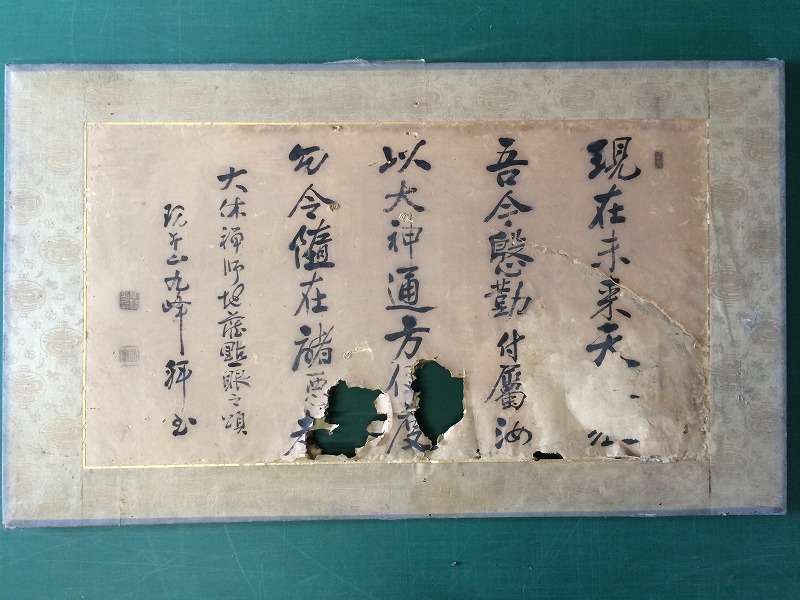 現在未来天
吾今慇勤付屬汝
以大神通方便度
勿令墮在諸悪
大休禅師地蔵點眼之頌
山九峰拜書